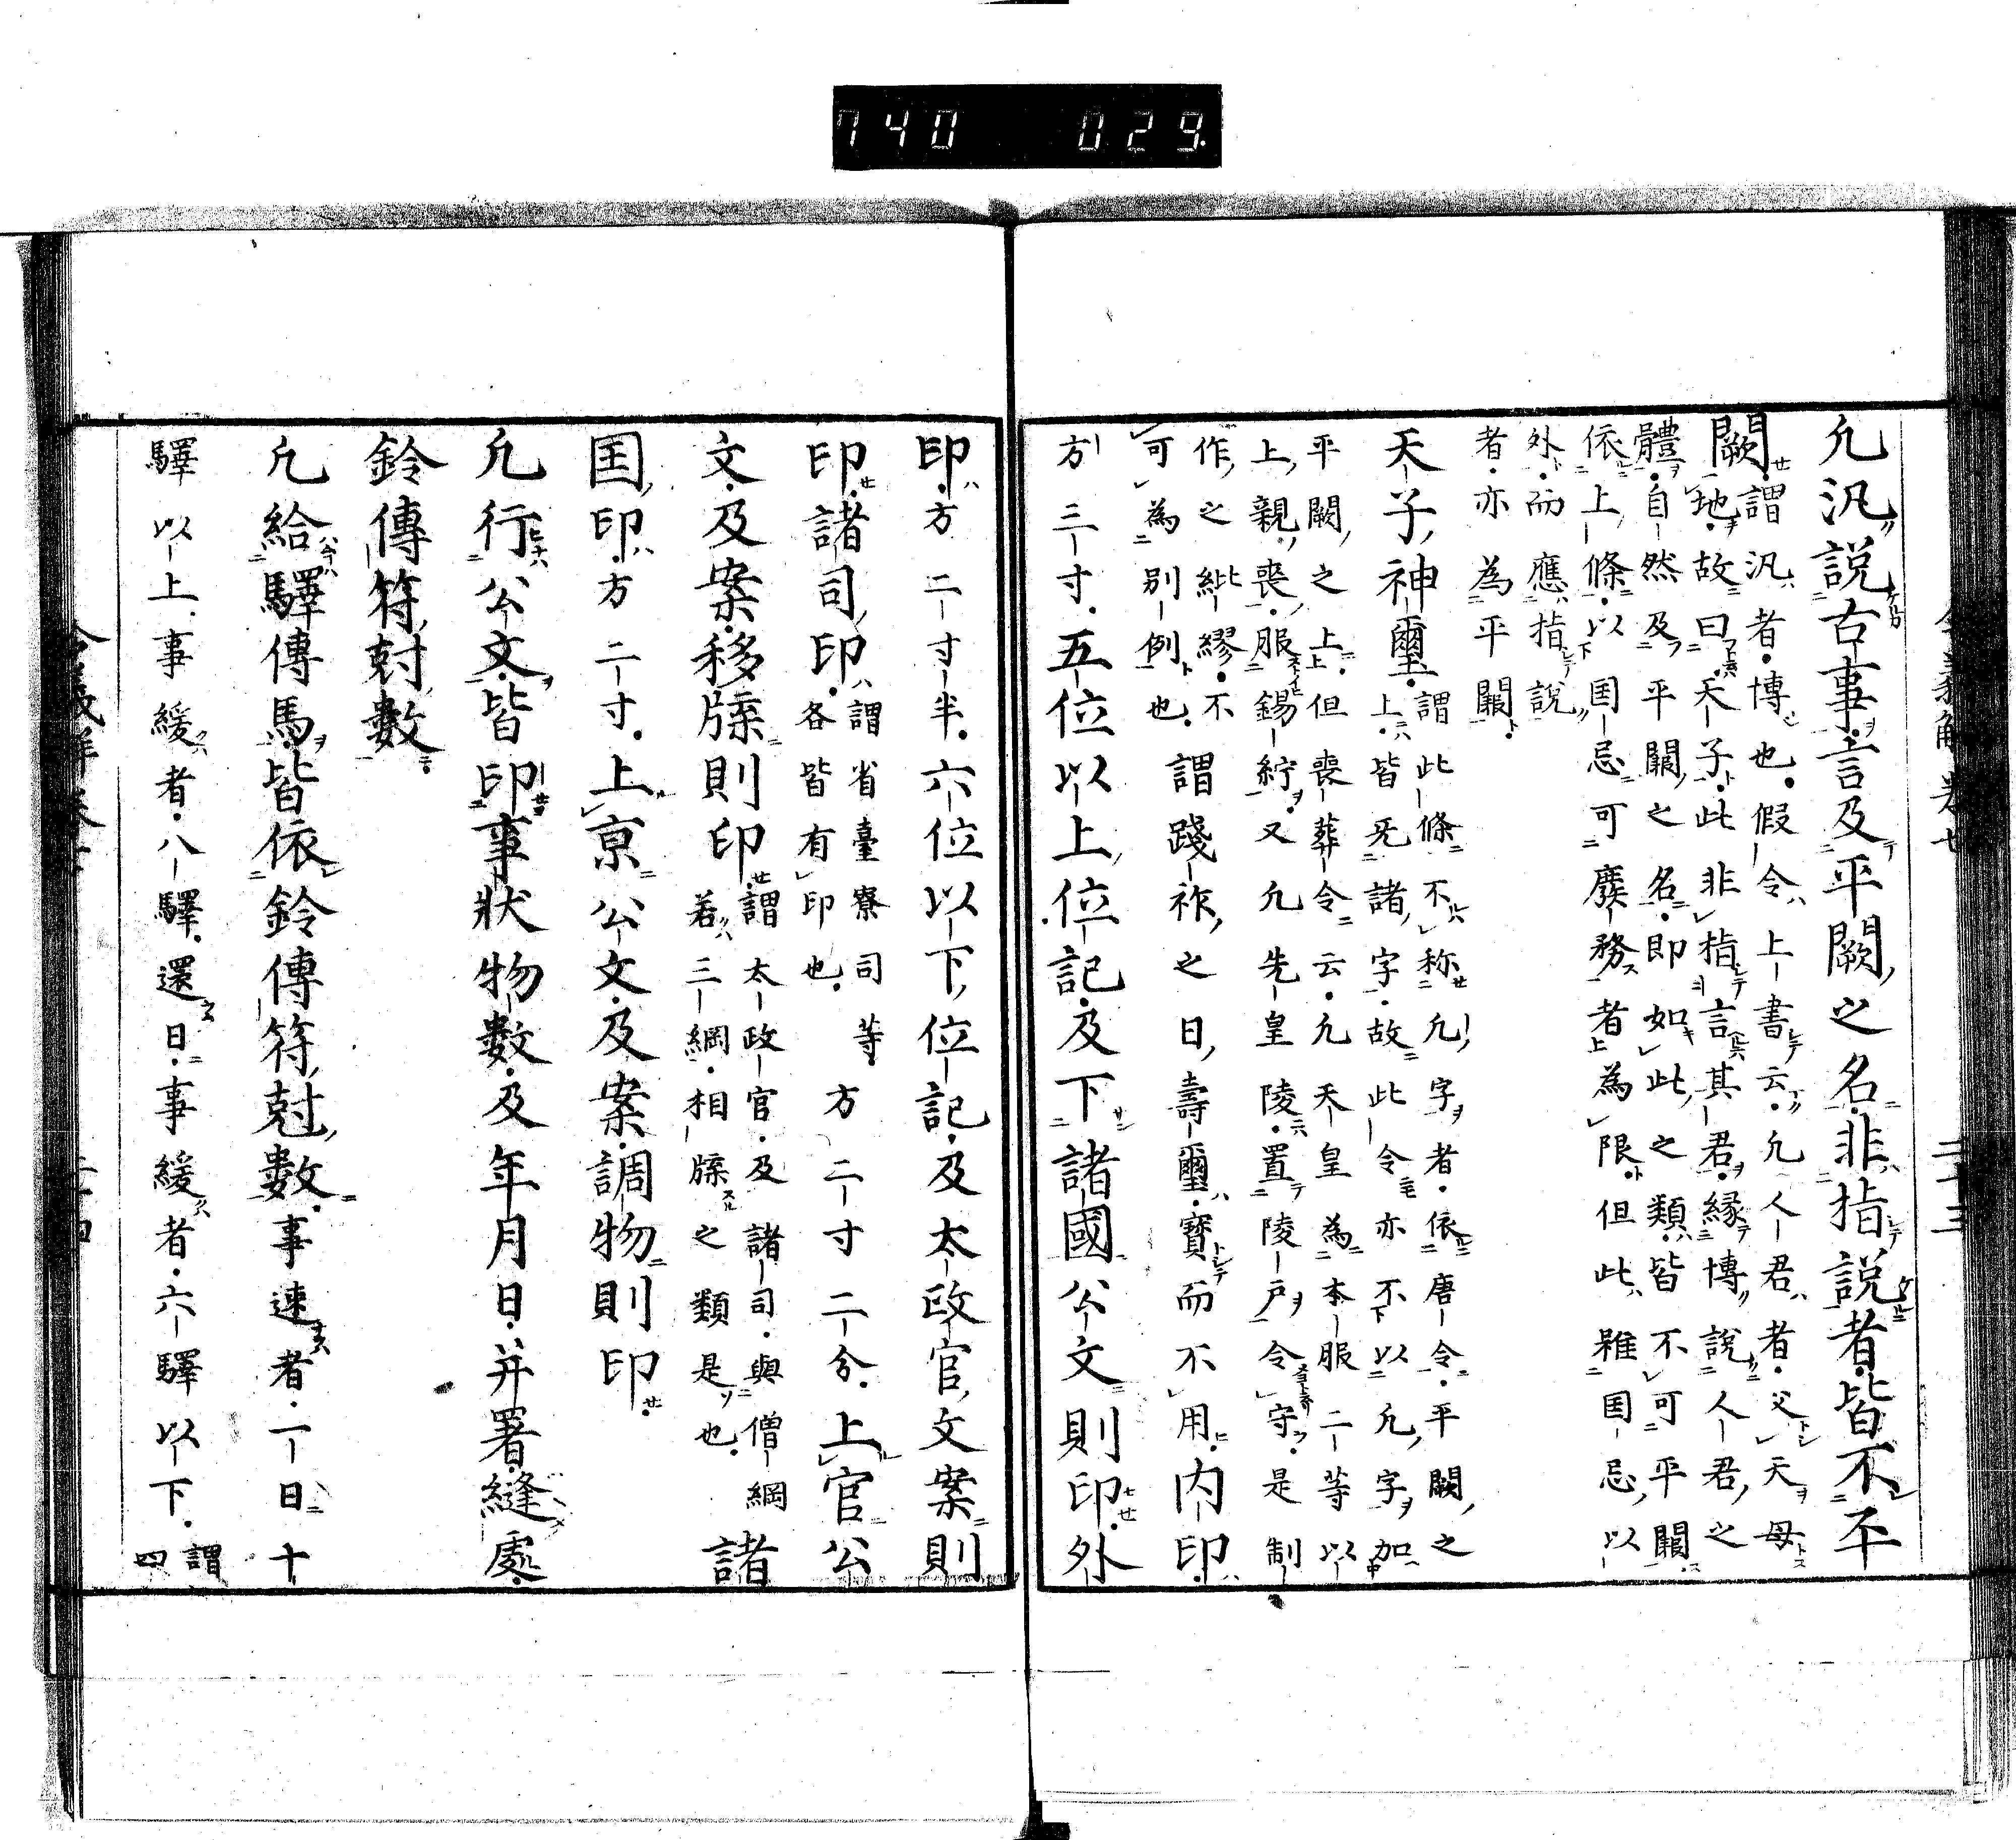 740 029
凢汎說古事言及平闕之名非指說者皆不平
闕謂汎者博也假令上書云凢人君者父天母
地故曰天子此非指言其君縁博說人君之
體自然及平闕之名即如此之類皆不可平闕
依上條以国忌可廢務者為限但此雖国忌以
外而應指說
者亦為平闕
天子神璽謂此條不称凢字者依唐令平闕之
上皆旡諸字故此令亦不以凢字加
平闕之上但喪葬令云凢天皇為本服二等以
上親喪服錫紵又凢先皇陵置陵戸令守是制
作之紕繆不
可為別例也謂踐祚之日壽璽寳而不用内印
方三寸五位以上位記及下諸國公文則印外
印方二寸半六位以下位記及太政官文案則
印諸司印謂省臺寮司等
各皆有印也方二寸二分上官公
文及案移牒則印謂太政官及諸司與僧綱
若三綱相牒之類是也諸
国印方二寸上京公文及案調物則印
凢行公文皆印事狀物數及年月日并署縫處
鈴傳符尅數
凢給驛傳馬皆依鈴傳符尅數事速者一日十
驛以上事緩者八驛還日事緩者六驛以下謂
四